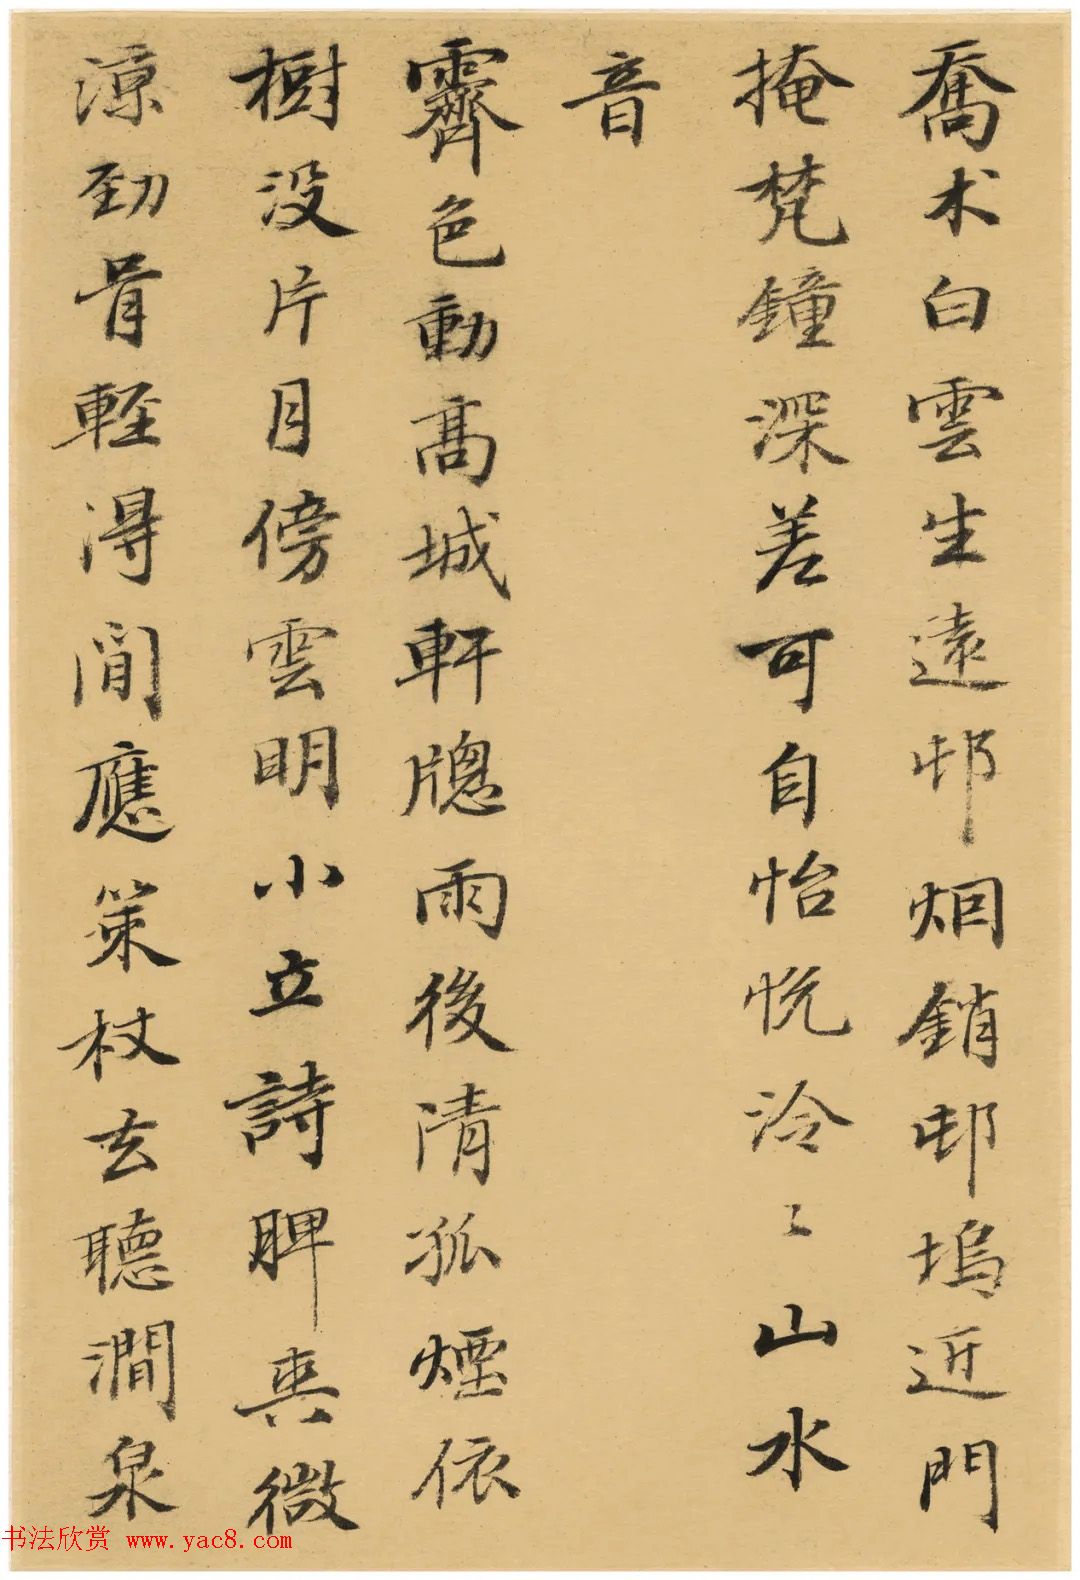 喬木白雲生遠邨烟銷邨塢近門
掩梵鐘深差可自怡悦泠〻山水
音
霽色動高城軒牕雨後清孤煙依
樹没片月傍雲明小立詩脾爽微
涼勁骨輕得閒應策杖去聽澗泉
书法欣赏 www.yac8.com